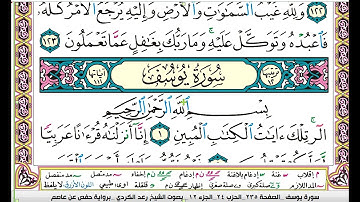 ١٢٢ وَلِلَّهِ غَيْبُ ٱلسَّمَٰوَٰتِ وَٱلْأَرْضِ وَإِلَيْهِ يُرْجَعُ ٱلْأَمْرُ كُلُّهُۥ
فَٱعْبُدْهُ وَتَوَكَّلْ عَلَيْهِ ۚ وَمَا رَبُّكَ بِغَٰفِلٍ عَمَّا تَعْمَلُونَ ١٢٣
ترتيبها ١٢ سُورَةُ يُوسُفَ آياتها
بِسْمِ ٱللَّهِ ٱلرَّحْمَٰنِ ٱلرَّحِيمِ
الٓر ۚ تِلْكَ ءَايَٰتُ ٱلْكِتَٰبِ ٱلْمُبِينِ ١ إِنَّآ أَنزَلْنَٰهُ قُرْءَٰنًا عَرَبِيًّا
سورة يوسف الصفحة ٢٣٥ الحزب ٢٤ الجزء ١٢ بصوت الشيخ رعد الكردي . برواية حفص عن عاصم